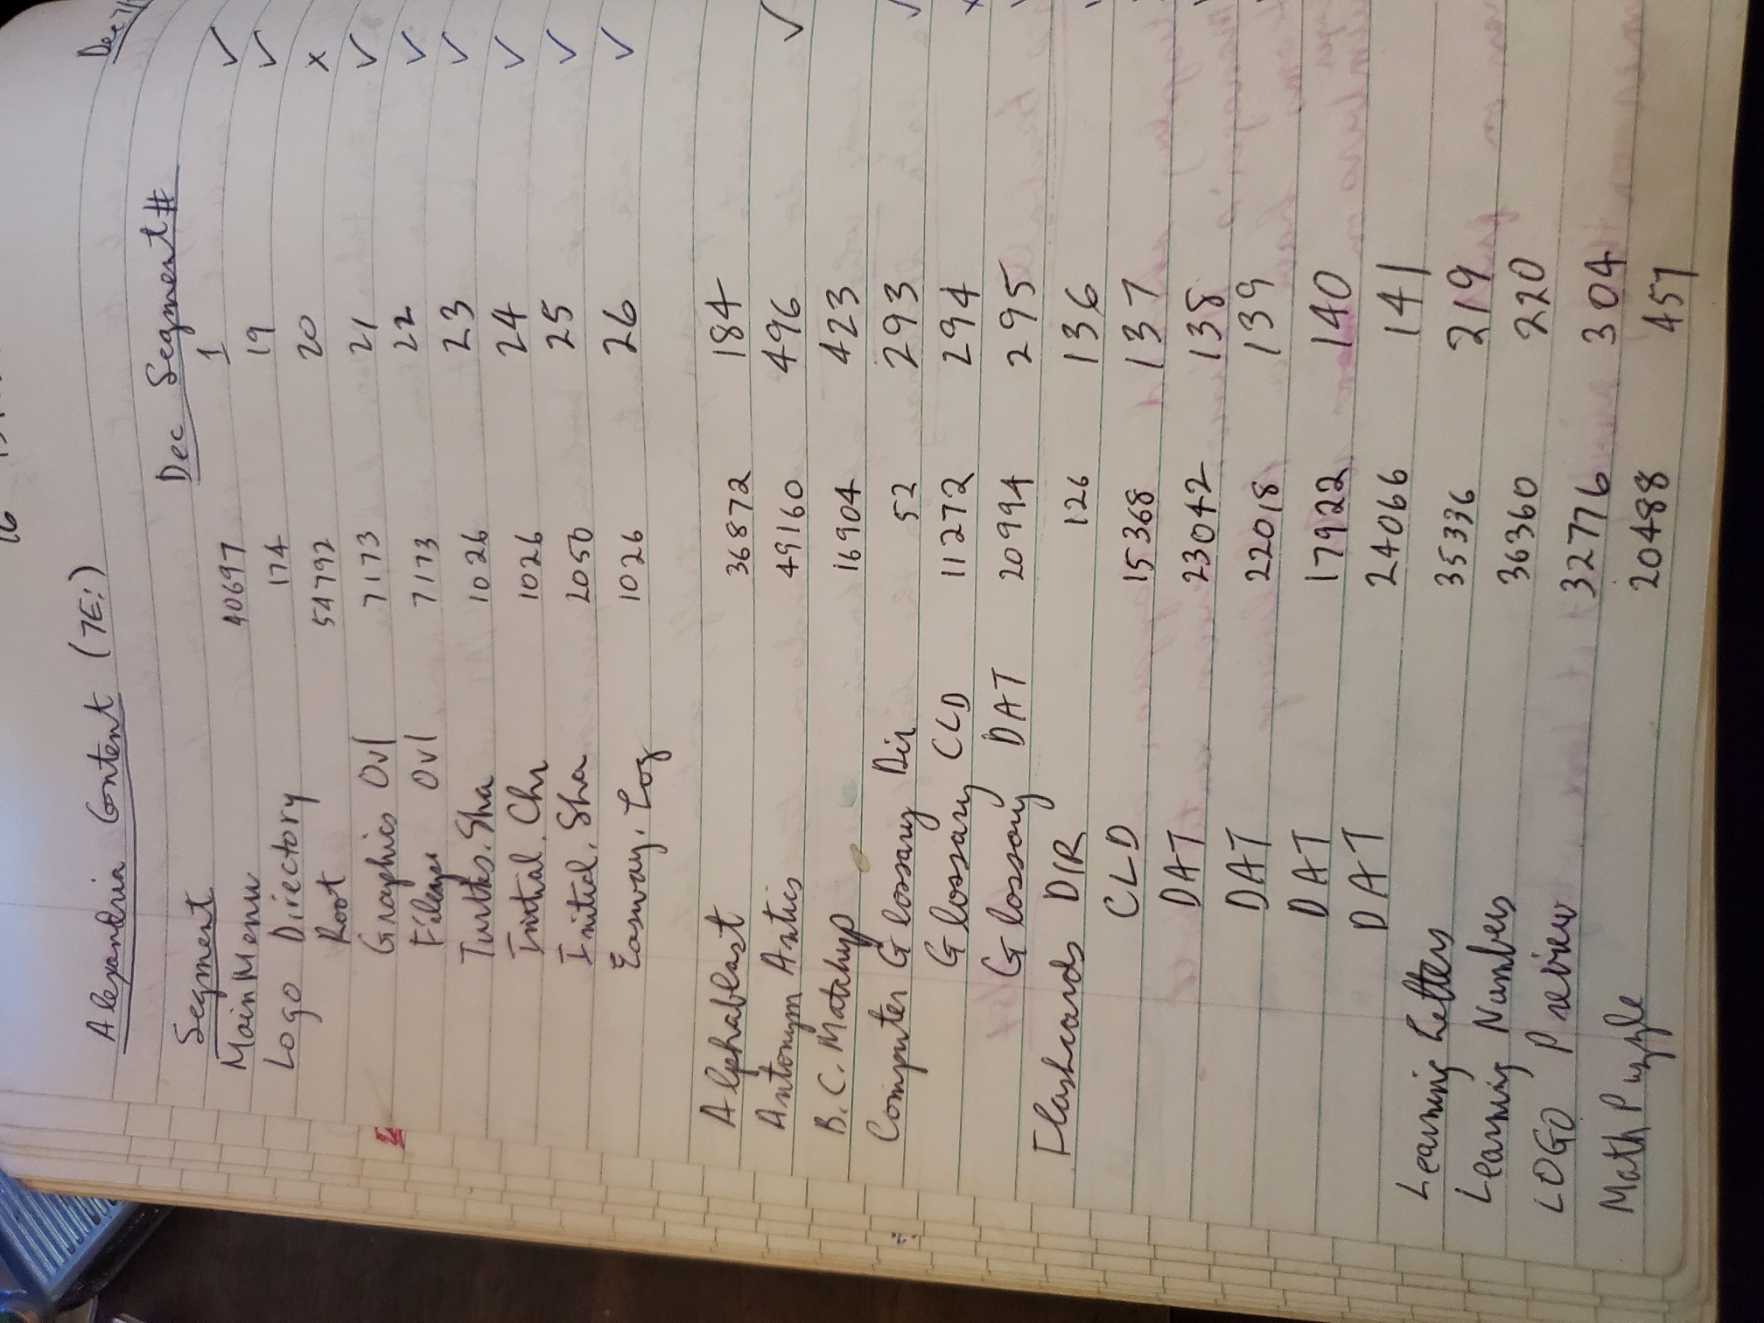 Alexandria Content (7E:)
Segment Dec Segment #
Main Menu 40697 1 ✓
Logo Directory 174 19 ✓
Root 54792 20 x
Graphics Ovl 7173 21 ✓
Filer Ovl 7173 22 ✓
Turtks.Sha 1026 23 ✓
Initial.Chr 1026 24 ✓
Initial.Sha 2050 25 ✓
Easway.Log 1026 26 ✓
Alphablast 36872 184
Antonym Antics 49160 496 ✓
B.C. Matchup 16904 423
Computer Glossary Dir 52 293
Glossary CLD 11272 294
Glossary DAT 20994 295
Flashcards DIR 126 136
CLD 15368 137
DAT 23042 138
DAT 22018 139
DAT 17922 140
DAT 24066 141
Learning Letters 35336 219
Learning Numbers 36360 220
LOGO Preview 32776 304
Math Puzzle 20488 457